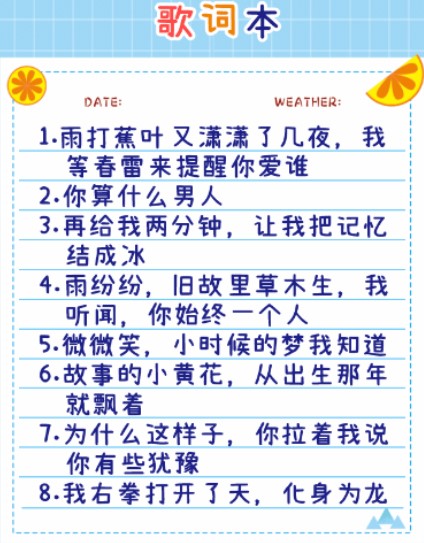 歌词本
DATE: WEATHER:
1.雨打蕉叶又潇潇了几夜，我
等春雷来提醒你爱谁
2.你算什么男人
3.再给我两分钟，让我把记忆
结成冰
4.雨纷纷，旧故里草木生，我
听闻，你始终一个人
5.微微笑，小时候的梦我知道
6.故事的小黄花，从出生那年
就飘着
7.为什么这样子，你拉着我说
你有些犹豫
8.我右拳打开了天，化身为龙